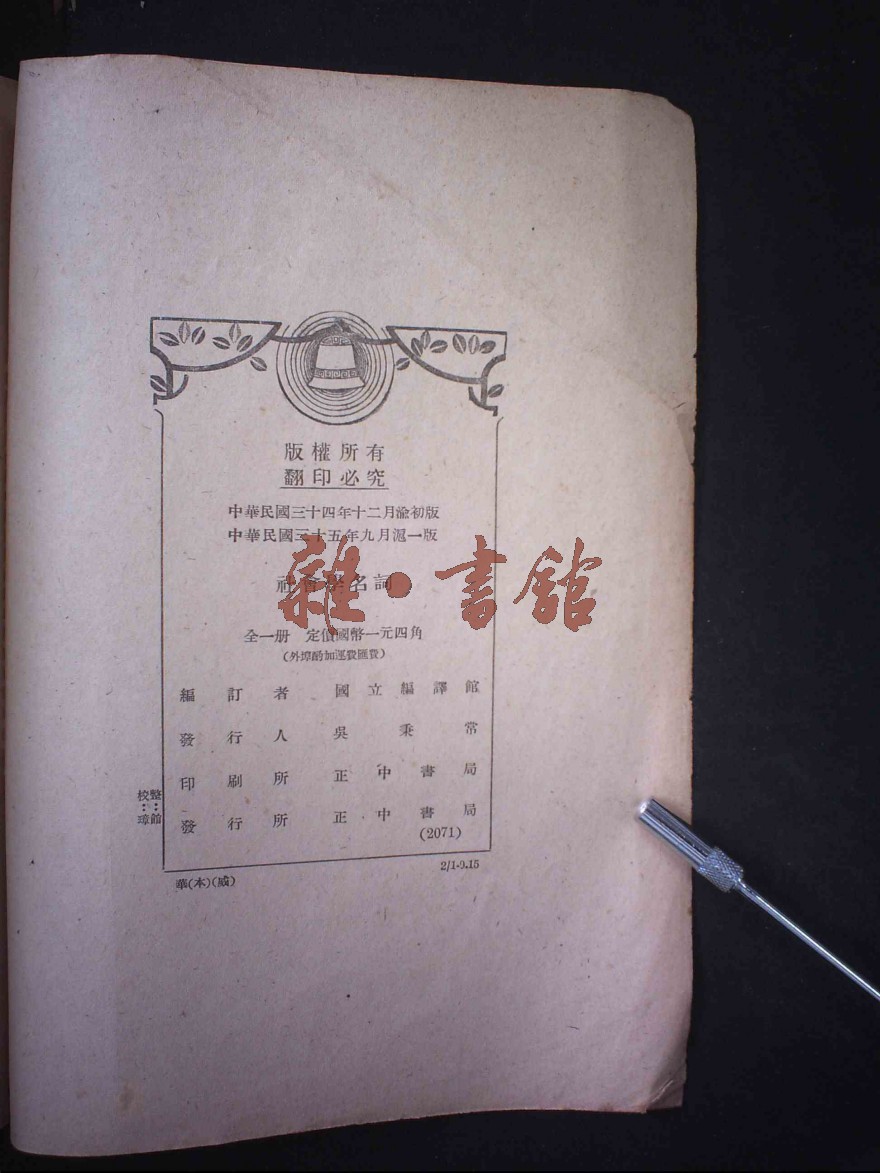 版權所有
翻印必究
中華民國三十四年十二月渝初版
中華民國三十五年九月滬一版
社會學名詞
雜·書館
全一册 定價國幣一元四角
(外埠酌加運費匯費)
編訂者 國立編譯館
發行人 吳秉常
印刷所 正中書局
發行所 正中書局
(2071)
整:館
校:璋
華(本)(威)
2/1-9.15